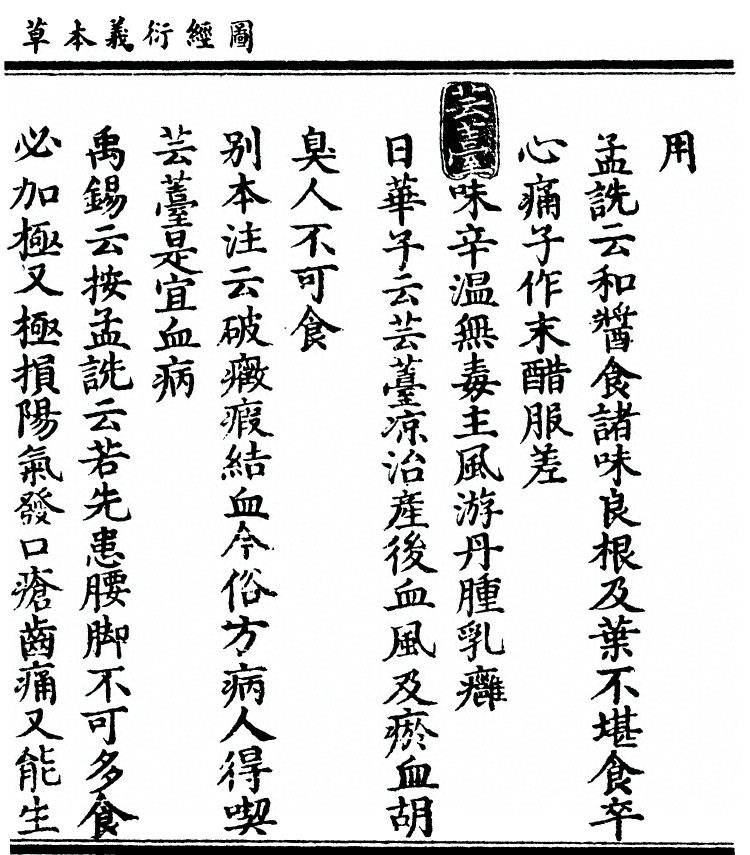 圖經衍義本草
用
孟詵云和醬食諸味良根及葉不堪食卒
心痛子作末醋服差
芸薹味辛温無毒主風游丹腫乳癰
日華子云芸薹凉治產後血風及瘀血胡
臭人不可食
别本注云破癥瘕結血今俗方病人得喫
芸薹是宜血病
禹錫云按孟詵云若先患腰脚不可多食
必加極又極損陽氣發口瘡齒痛又能生